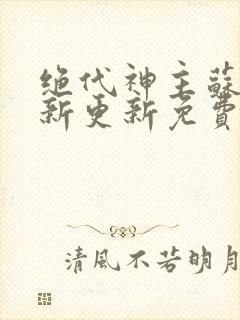 绝代神主蘇
新更新免費
清風不若明月